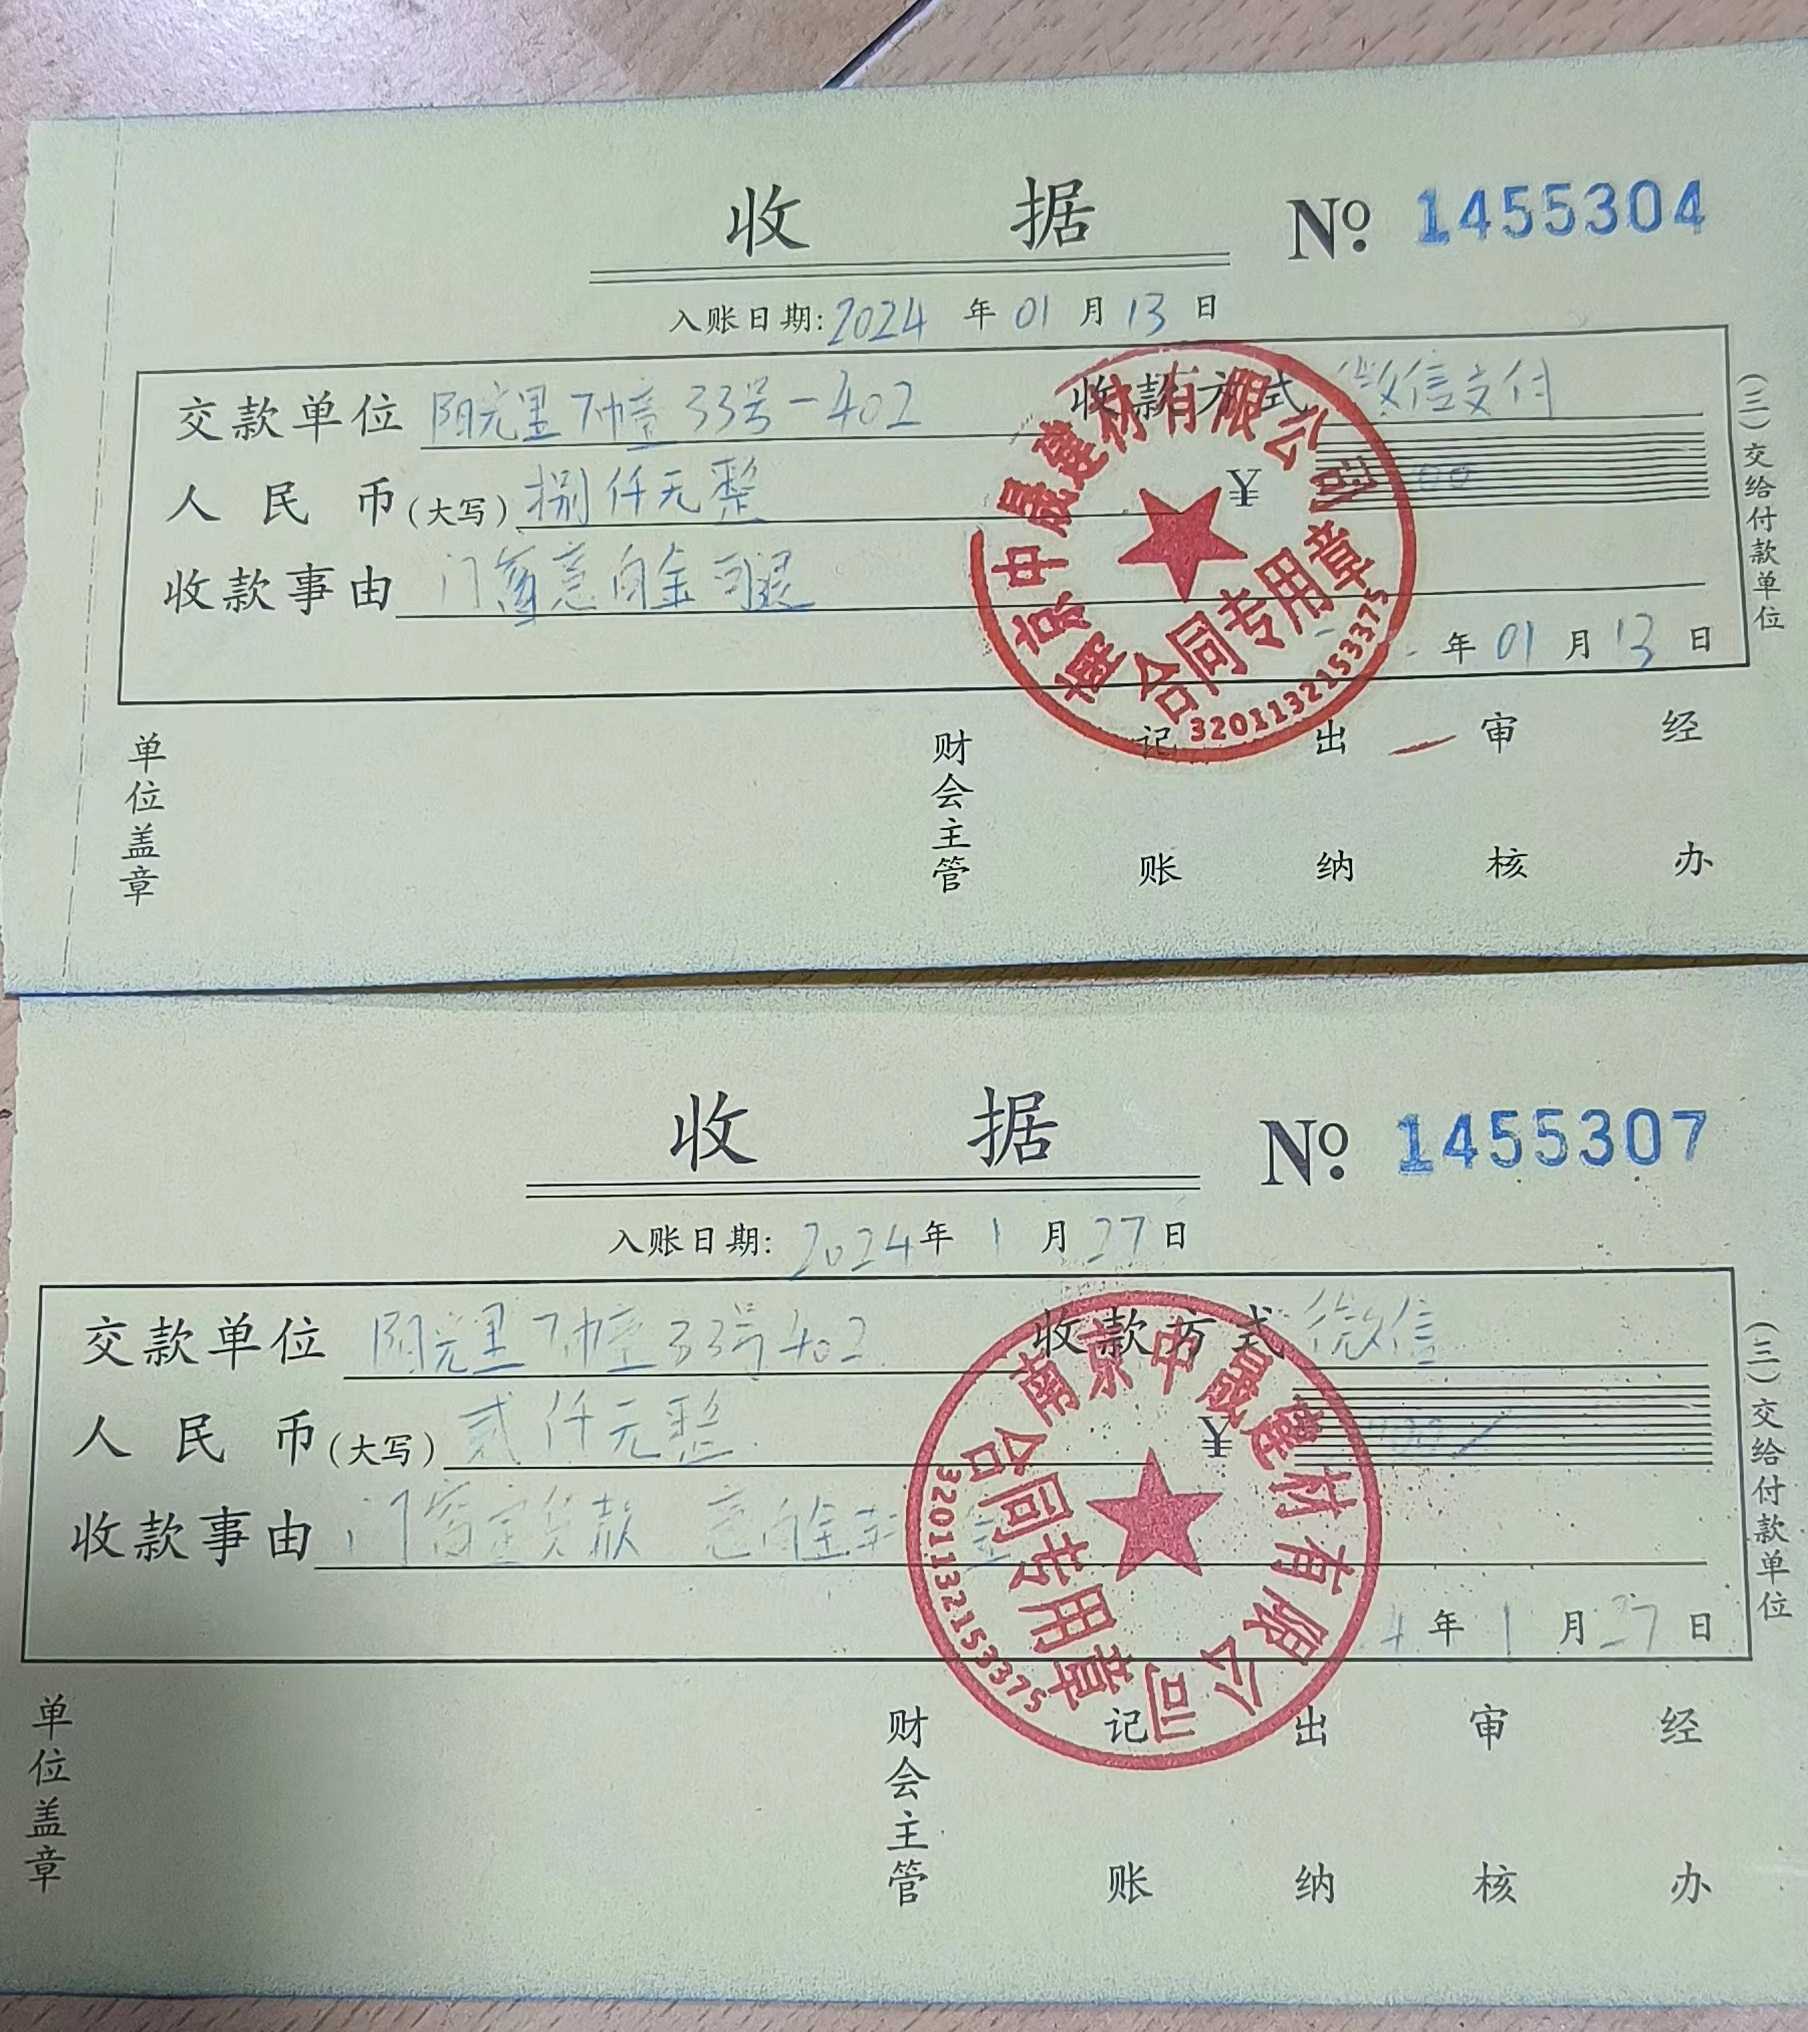 收 据 № 1455304
入账日期: 2024 年 01 月 13 日
交款单位 阳光里7幢33号-402 收款方式 微信支付
人民币(大写) 捌仟元整 ¥ 00
收款事由 门窗意向金可退
年 01 月 13 日
(三)交给付款单位
南京中晟建材有限公司
合同专用章
3201132153375
单位盖章 财会主管 记账 出纳 审核 经办
收 据 № 1455307
入账日期: 2024 年 1 月 27 日
交款单位 阳光里7幢33号402 收款方式 微信
人民币(大写) 贰仟元整 ¥
收款事由 门窗定货款 意向金
4 年 1 月 27 日
(三)交给付款单位
南京中晟建材有限公司
合同专用章
3201132153375
单位盖章 财会主管 记账 出纳 审核 经办